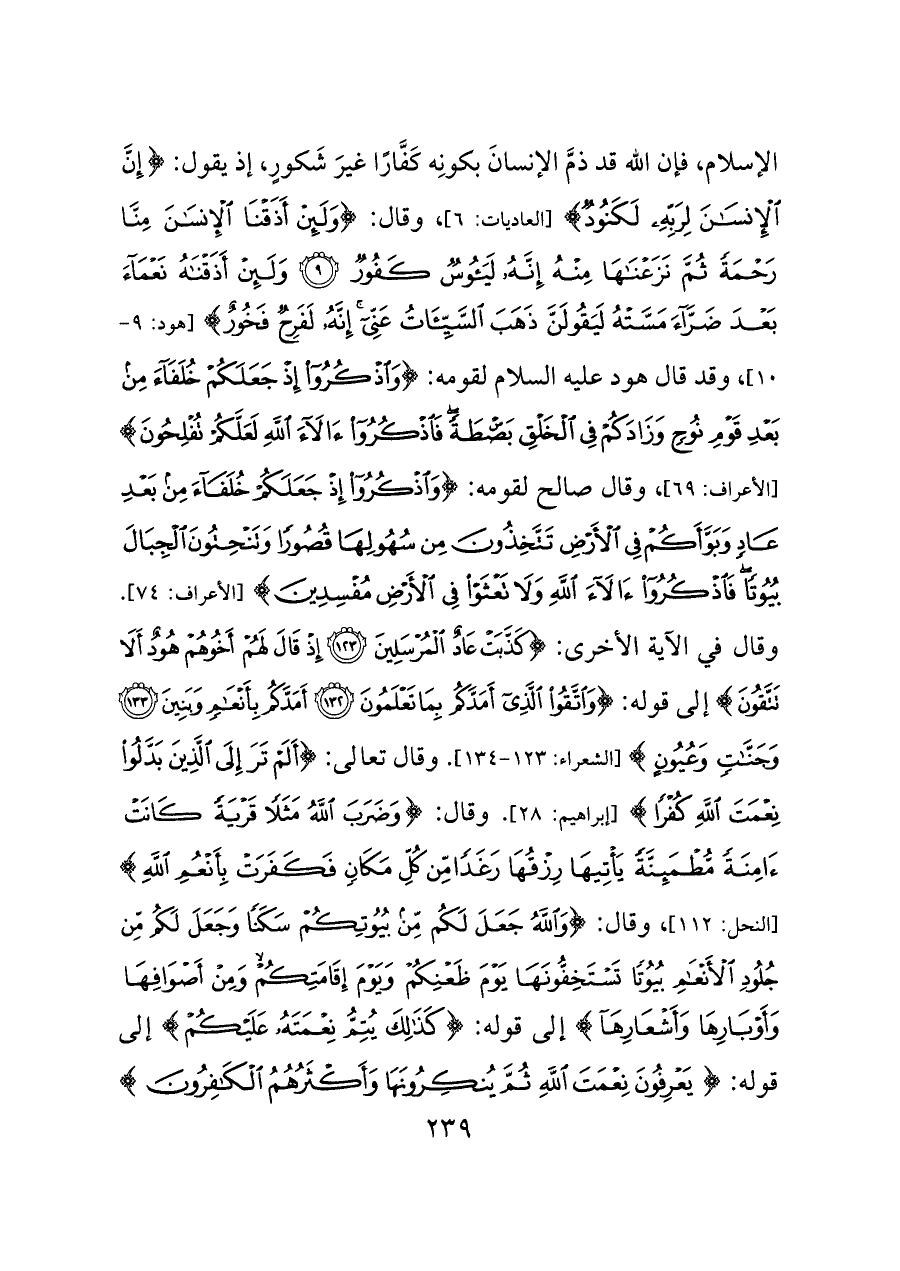 الإسلام، فإن الله قد ذمَّ الإنسانَ بكونِه كَفَّارًا غيرَ شَكورٍ، إذ يقول: ﴿إِنَّ
ٱلْإِنسَٰنَ لِرَبِّهِۦ لَكَنُودٌ﴾ [العاديات: ٦]، وقال: ﴿وَلَئِنْ أَذَقْنَا ٱلْإِنسَٰنَ مِنَّا
رَحْمَةً ثُمَّ نَزَعْنَٰهَا مِنْهُ إِنَّهُۥ لَيَـُٔوسٌ كَفُورٌ ۝٩ وَلَئِنْ أَذَقْنَٰهُ نَعْمَآءَ
بَعْدَ ضَرَّآءَ مَسَّتْهُ لَيَقُولَنَّ ذَهَبَ ٱلسَّيِّـَٔاتُ عَنِّىٓ ۚ إِنَّهُۥ لَفَرِحٌ فَخُورٌ﴾ [هود: ٩-
١٠]، وقد قال هود عليه السلام لقومه: ﴿وَٱذْكُرُوٓا۟ إِذْ جَعَلَكُمْ خُلَفَآءَ مِنۢ
بَعْدِ قَوْمِ نُوحٍ وَزَادَكُمْ فِى ٱلْخَلْقِ بَصْۜطَةً ۖ فَٱذْكُرُوٓا۟ ءَالَآءَ ٱللَّهِ لَعَلَّكُمْ تُفْلِحُونَ﴾
[الأعراف: ٦٩]، وقال صالح لقومه: ﴿وَٱذْكُرُوٓا۟ إِذْ جَعَلَكُمْ خُلَفَآءَ مِنۢ بَعْدِ
عَادٍ وَبَوَّأَكُمْ فِى ٱلْأَرْضِ تَتَّخِذُونَ مِن سُهُولِهَا قُصُورًا وَتَنْحِتُونَ ٱلْجِبَالَ
بُيُوتًا ۖ فَٱذْكُرُوٓا۟ ءَالَآءَ ٱللَّهِ وَلَا تَعْثَوْا۟ فِى ٱلْأَرْضِ مُفْسِدِينَ﴾ [الأعراف: ٧٤].
وقال في الآية الأخرى: ﴿كَذَّبَتْ عَادٌ ٱلْمُرْسَلِينَ ۝١٢٣ إِذْ قَالَ لَهُمْ أَخُوهُمْ هُودٌ أَلَا
تَتَّقُونَ﴾ إلى قوله: ﴿وَٱتَّقُوا۟ ٱلَّذِىٓ أَمَدَّكُم بِمَا تَعْلَمُونَ ۝١٣٢ أَمَدَّكُم بِأَنْعَٰمٍ وَبَنِينَ ۝١٣٣
وَجَنَّٰتٍ وَعُيُونٍ﴾ [الشعراء: ١٢٣-١٣٤]. وقال تعالى: ﴿أَلَمْ تَرَ إِلَى ٱلَّذِينَ بَدَّلُوا۟
نِعْمَتَ ٱللَّهِ كُفْرًا﴾ [إبراهيم: ٢٨]. وقال: ﴿وَضَرَبَ ٱللَّهُ مَثَلًا قَرْيَةً كَانَتْ
ءَامِنَةً مُّطْمَئِنَّةً يَأْتِيهَا رِزْقُهَا رَغَدًا مِّن كُلِّ مَكَانٍ فَكَفَرَتْ بِأَنْعُمِ ٱللَّهِ﴾
[النحل: ١١٢]، وقال: ﴿وَٱللَّهُ جَعَلَ لَكُم مِّنۢ بُيُوتِكُمْ سَكَنًا وَجَعَلَ لَكُم مِّن
جُلُودِ ٱلْأَنْعَٰمِ بُيُوتًا تَسْتَخِفُّونَهَا يَوْمَ ظَعْنِكُمْ وَيَوْمَ إِقَامَتِكُمْ ۙ وَمِنْ أَصْوَافِهَا
وَأَوْبَارِهَا وَأَشْعَارِهَآ﴾ إلى قوله: ﴿كَذَٰلِكَ يُتِمُّ نِعْمَتَهُۥ عَلَيْكُمْ﴾ إلى
قوله: ﴿يَعْرِفُونَ نِعْمَتَ ٱللَّهِ ثُمَّ يُنكِرُونَهَا وَأَكْثَرُهُمُ ٱلْكَٰفِرُونَ﴾
٢٣٩